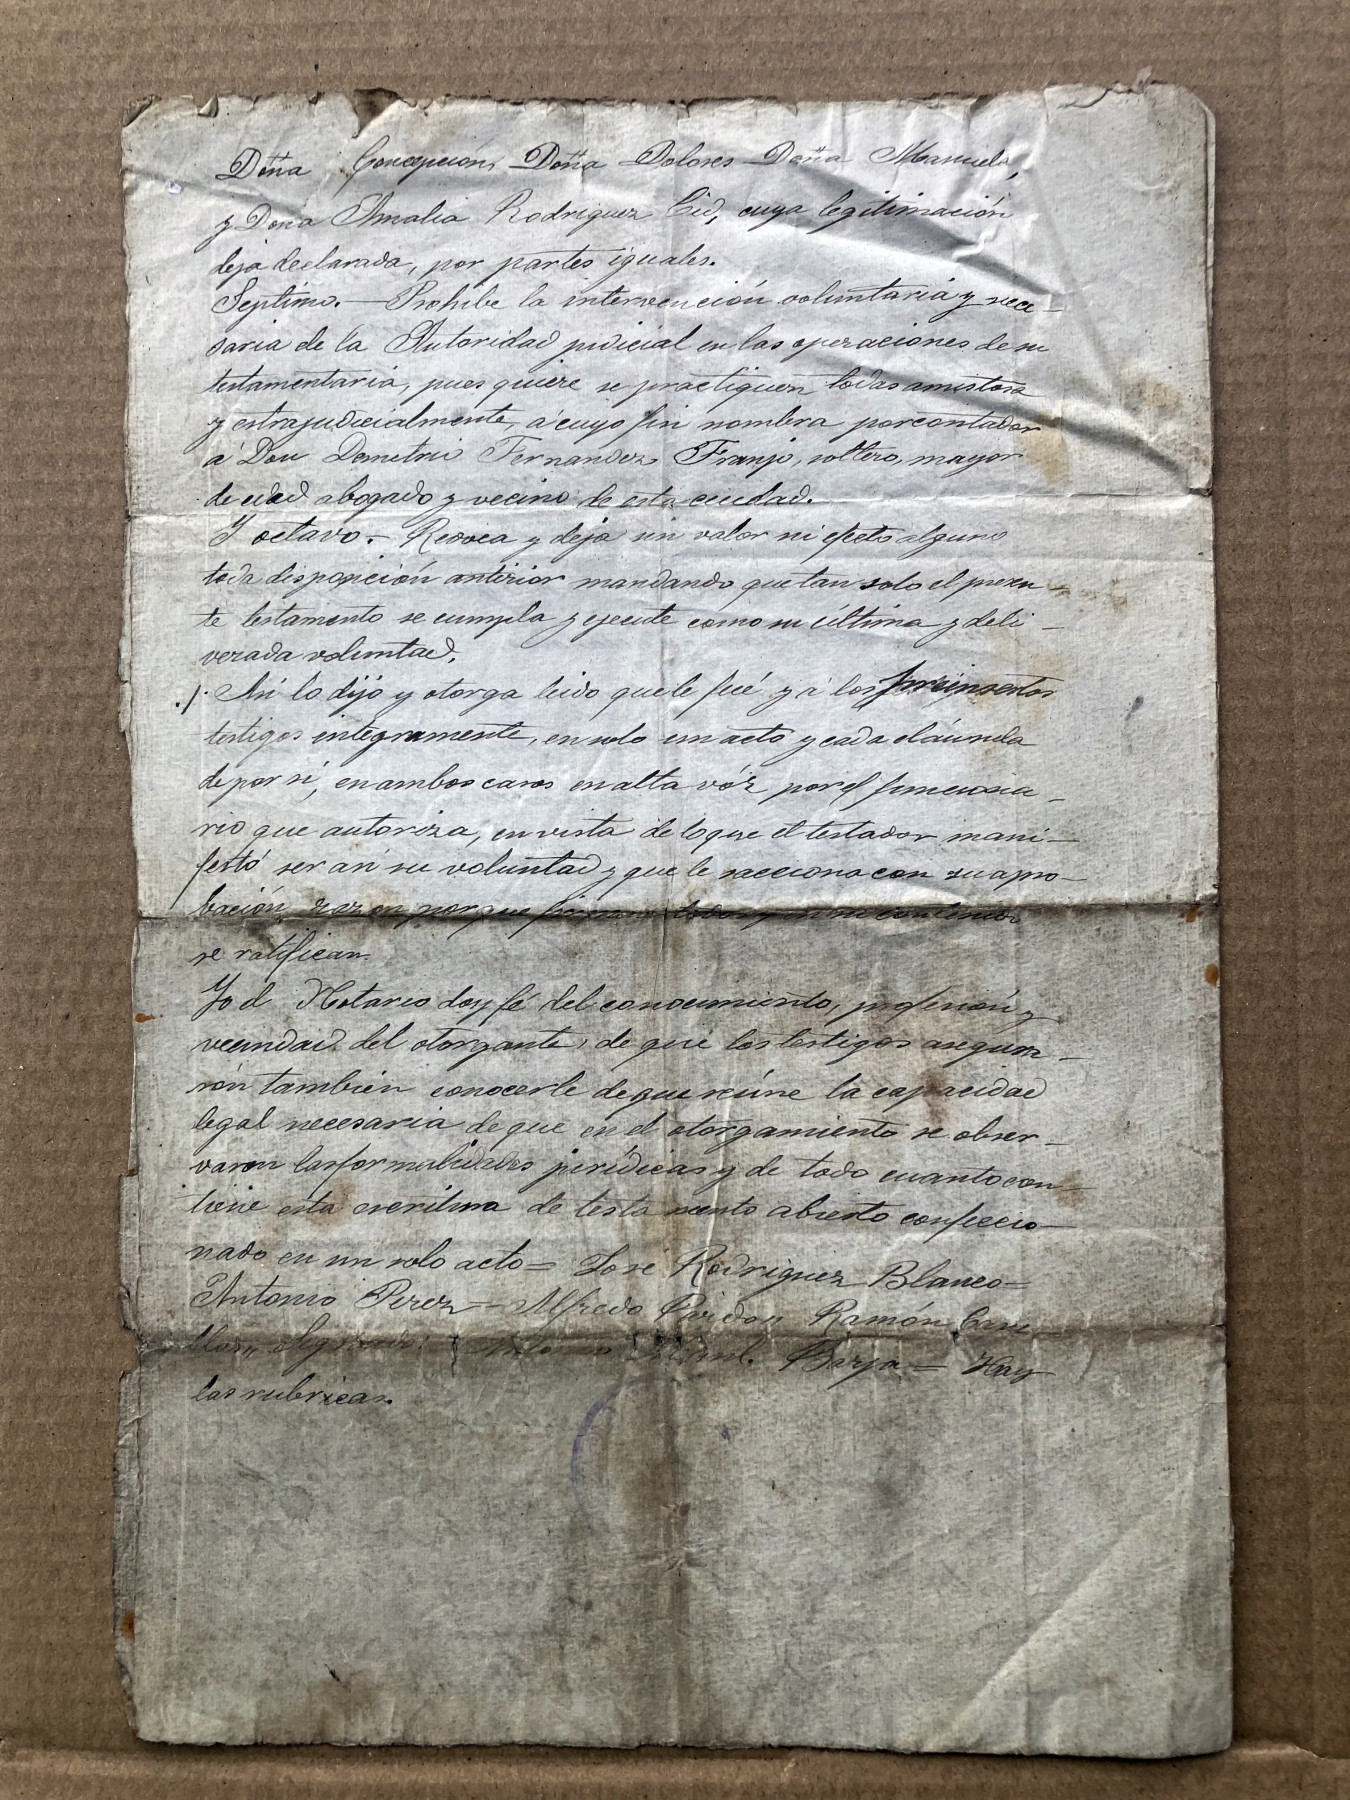 Doña Concepción, Doña Dolores Doña Manuela,
y Doña Amalia Rodriguez Cid, cuya legitimación
deja declarada, por partes iguales.
Septimo.- Prohibe la intervención voluntaria y nece-
saria de la Autoridad judicial en las operaciones de su
testamentaria, pues quiere se practiquen todas amistosa
y estrajudicialmente, á cuyo fin nombra por contador
á Don Demetrio Fernandez Franjo, soltero, mayor
de edad abogado y vecino de esta ciudad.
Y octavo.- Revoca y deja sin valor ni efecto alguno
toda disposición anterior mandando que tan solo el presen-
te testamento se cumpla y ejecute como su última y deli-
verada voluntad.
./. Así lo dijo y otorga leido que le fué y á los preinsertos
testigos integramente, en solo un acto y cada cláusula
de por sí, en ambos casos en alta vóz por el funciona-
rio que autoriza, en vista de lo que el testador mani-
festó ser así su voluntad y que le sacciona con su apro-
bación, razon porque firman todos y en su contenido
se ratifican.
Yo el Notario doy fé del conocimiento, profesión y
vecindad del otorgante, de que los testigos asegura-
rón también conocerle de que reúne la capacidad
legal necesaria de que en el otorgamiento se obser-
varon las formalidades jurídicas y de todo cuanto con-
tiene esta escritura de testamento abierto confeccio-
nado en un solo acto= José Rodriguez Blanco=
Antonio Perez= Alfredo Ramón
Signado: Antonio = Hay
las rubricas.